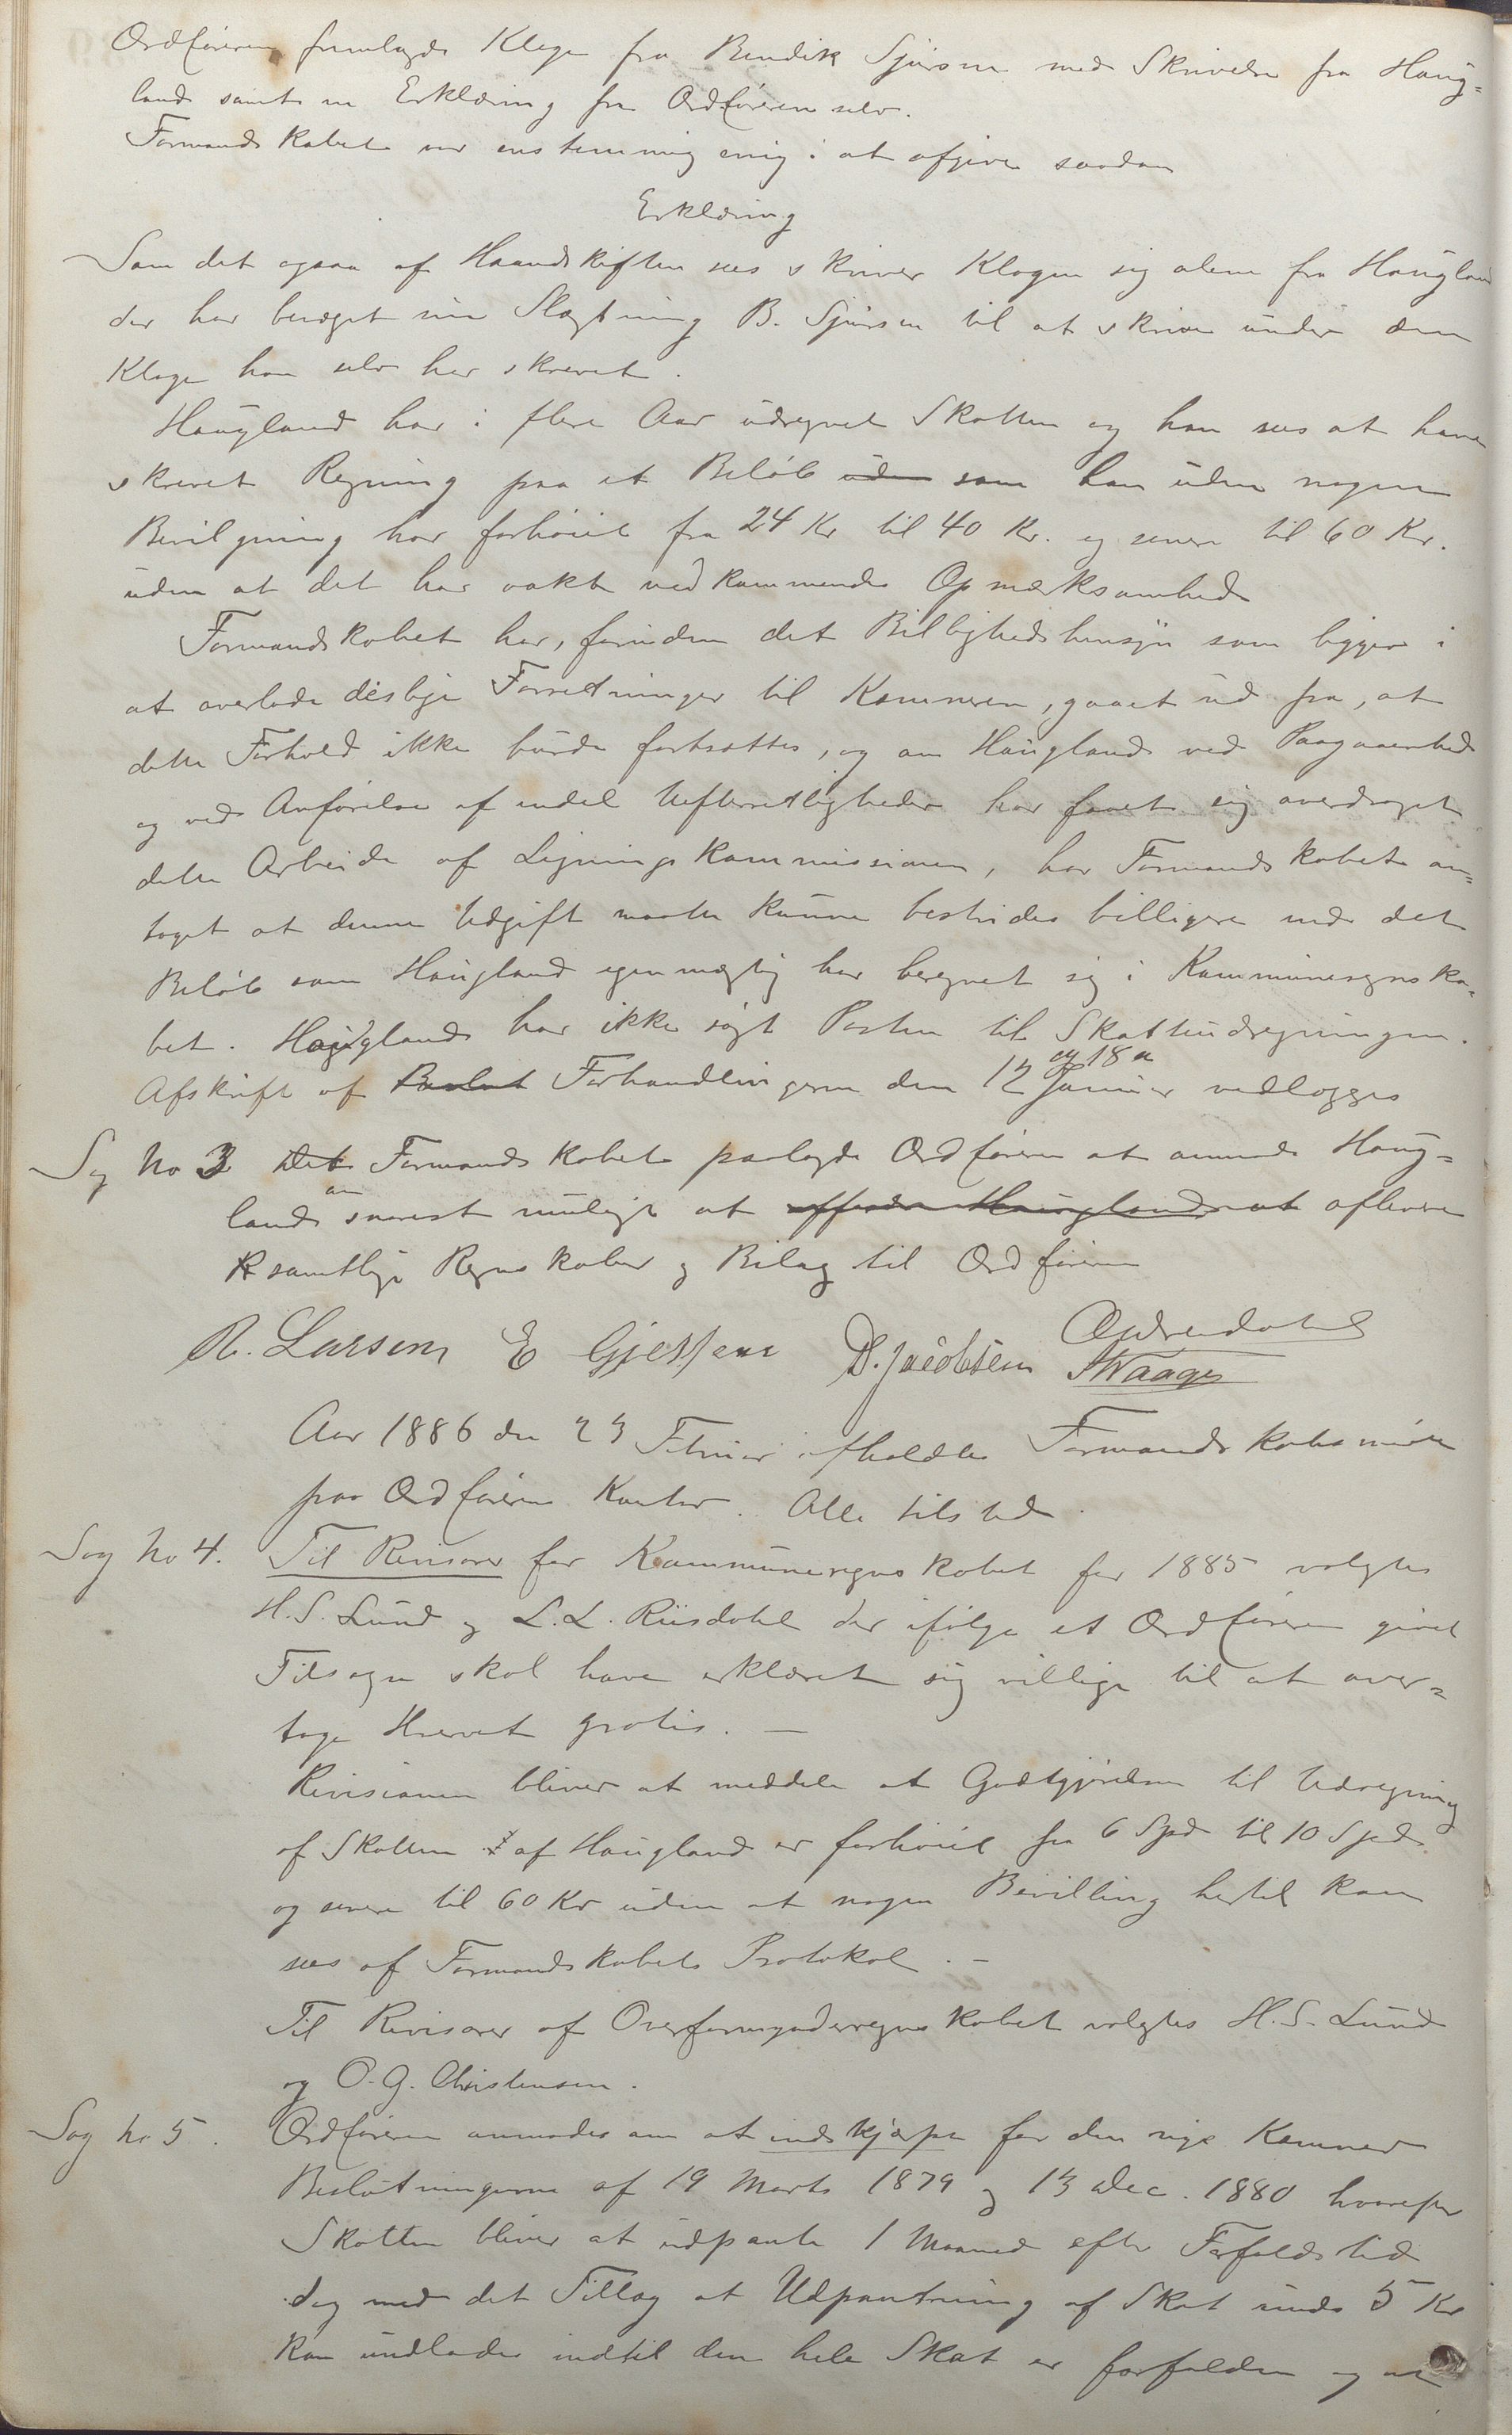 Ordføreren fremlagde Klage fra Bendik Sjursen med Skrivelse fra Haug=
land samt en Erklæring fra Ordføreren selv.
Formandskabet var enstemmig enig i at afgive saadan
Erklæring
Som det ogsaa af Haandskriften sees skriver Klagen sig alene fra Haugland
der har bevæget sin Slægtning B. Sjursen til at skrive under den
Klage han selv har skrevet.
Haugland har i flere Aar udregnet Skatten og han sees at have
skrevet Regning paa et Beløb uden som han uden nogen
Bevilgning har forhøiet fra 24 Kr til 40 Kr. og senere til 60 Kr.
uden at det har vakt vedkommendes Opmærksomhed
Formandskabet har, foruden det Billighedshensyn som ligger i
at overlade deslige Forretninger til Kæmneren, gaaet ud fra, at
dette Forhold ikke burde fortsættes, og om Haugland ved Paagaaenhed
og ved Anførelse af endel Uefterretligheder har faaet sig overdraget
dette Arbeide af Ligningskommissionen, har Formandskabet an=
taget at denne Udgift maatte kunne bestrides billigere end det
Beløb som Haugland egenmægtig har beregnet sig i Kommuneregnska=
bet. Haugland har ikke søgt Posten til Skatteudregningen.
Afskrift af Forhandlingerne den 12 og 18 Januar vedlægges
Sag No 3 Det Formandskabet paalagde Ordføreren at anmode Haug=
land om snarest muligt at affordre Haugland at aflevere
R samtlige Regnskaber og Bilag til Ordføreren
R. Larsen E Gjessen D. Jacobsen Opdendahl
Waage
Aar 1886 den 23 Februar afholdtes Formandskabsmøde
paa Ordførerens Kontor. Alle tilstede.
Sag No 4. Til Revisorer for Kommuneregnskabet for 1885 valgtes
H. S. Lund og L. L. Riisdahl der ifølge et Ordføreren givet
Tilsagn skal have erklæret sig villige til at over=
tage Hvervet gratis. —
Revisionen bliver at meddele at Godtgjørelsen til Udregning
af Skatten af Haugland er forhøiet fra 6 Spd til 10 Spd
og senere til 60 Kr uden at nogen Bevilling hertil kan
sees af Formandskabets Protokol. —
Til Revisorer af Overformynderregnskabet valgtes H. S. Lund
og O. G. Christensen.
Sag No 5. Ordføreren anmodes om at indskjærpe for den nye Kæmner
Beslutningerne af 19 Marts 1879 og 13 Dec. 1880 hvorefter
Skatten bliver at udpante 1 Maaned efter Forfaldstid
dog med det Tillæg at Udpantning af Skat under 5 Kr
kan undlades indtil den hele Skat er forfalden og at